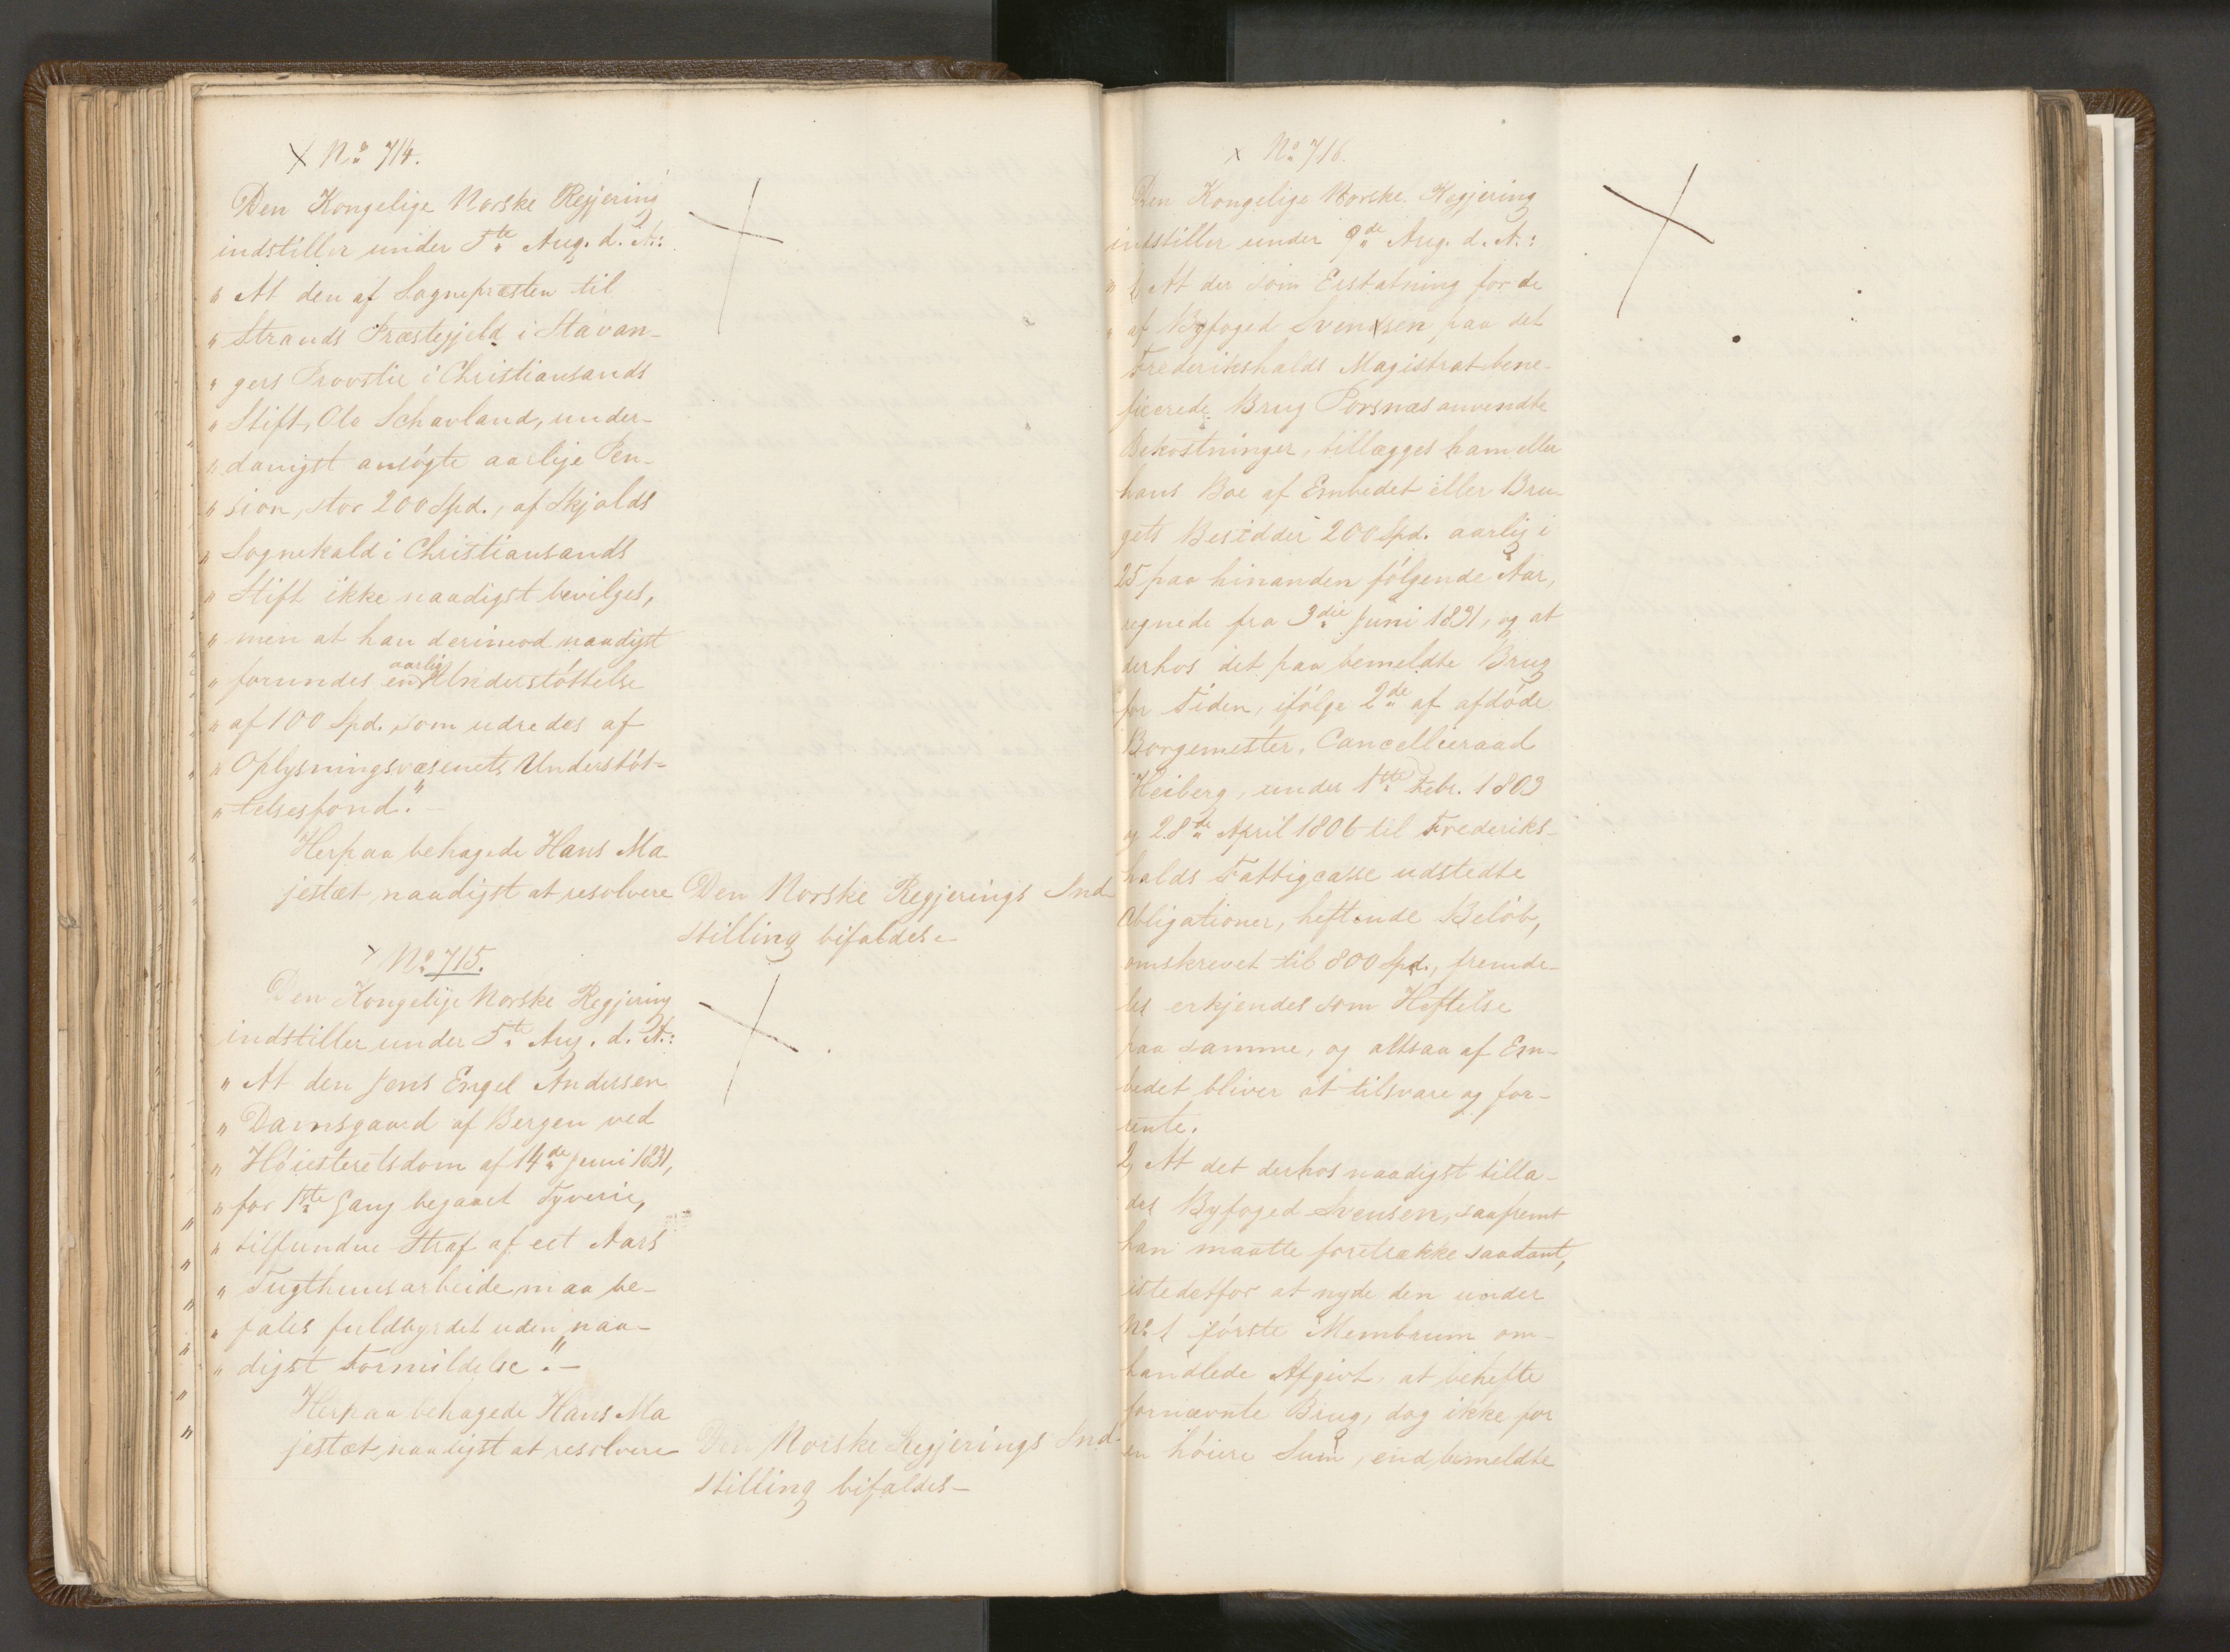 No 714.
Den Kongelige Norske Regjering
indstiller under 5te Aug. d. A.:
„ At den af Sognepræsten til
„ Strands Præstegjeld i Stavan-
„ gers Provstie i Christiansands
„ Stift, Ole Schavland, under-
„ danigst ansögte aarlige Pen-
„ sion, stor 200 Spd., af Skjolds
„ Sognekald i Christiansands
„ Stift ikke naadigst bevilges,
„ men at han derimod naadigst
„ forundes en aarlig Understöttelse
„ af 100 Spd. som udredes af
„ Oplysningsvæsenets Understöt-
„ telsesfond."-
Herpaa behagede Hans Ma
jestæt naadigst at resolvere
Den Norske Regjerings Ind
stilling bifaldes.-
No 715.
Den Kongelige Norske Regjering
indstiller under 5te Aug. d. A.:
„ At den Jens Engel Andersen
„ Damsgaard af Bergen ved
„ Höiesteretsdom af 14de Juni 1831,
„ for 1ste Gang begaaet Tyverie,
„ tilfundne Straf af eet Aars
„ Tugthuusarbeide maa be-
„ fales fuldbyrdet uden naa-
„ digst Formildelse".-
Herpaa behagede Hans Ma
jestæt naadigst at resolvere
Den Norske Regjerings Ind-
stilling bifaldes-
No 716.
Den Kongelige Norske Regjering
indstiller under 9de Aug. d. A.:
„ 1, At der som Erstatning for de
„ af Byfoged Svensen paa det
Frederikshalds Magistrat bene-
ficerede Brug Porsnæs anvendte
Bekostninger, tillægges ham eller
hans Boe af Embedet eller Bru-
gets Besidder 200 Spd. aarlig i
25 paa hinanden fölgende Aar,
regnede fra 3die Juni 1831, og at
derhos det paa bemeldte Brug
for Tiden, ifölge 2de af afdöde
Borgemester, Cancellieraad
Heiberg, under 1ste Febr. 1803
og 28de April 1806 til Frederiks-
halds Fattigcasse udstedte
Obligationer, heftende Belöb,
omskrevet til 800 Spd., fremde-
les erkjendes som Heftelse
paa samme, og altsaa af Em-
bedet bliver at tilsvare og for-
rente.
2, At det derhos naadigst tilla-
des Byfoged Svensen, saafremt
han maatte foretrække saadant,
istedetfor at nyde den under
No 1 förste Membrum om-
handlede Afgivt, at behefte
fornævnte Brug, dog ikke for
en höiere Sum, end bemeldte